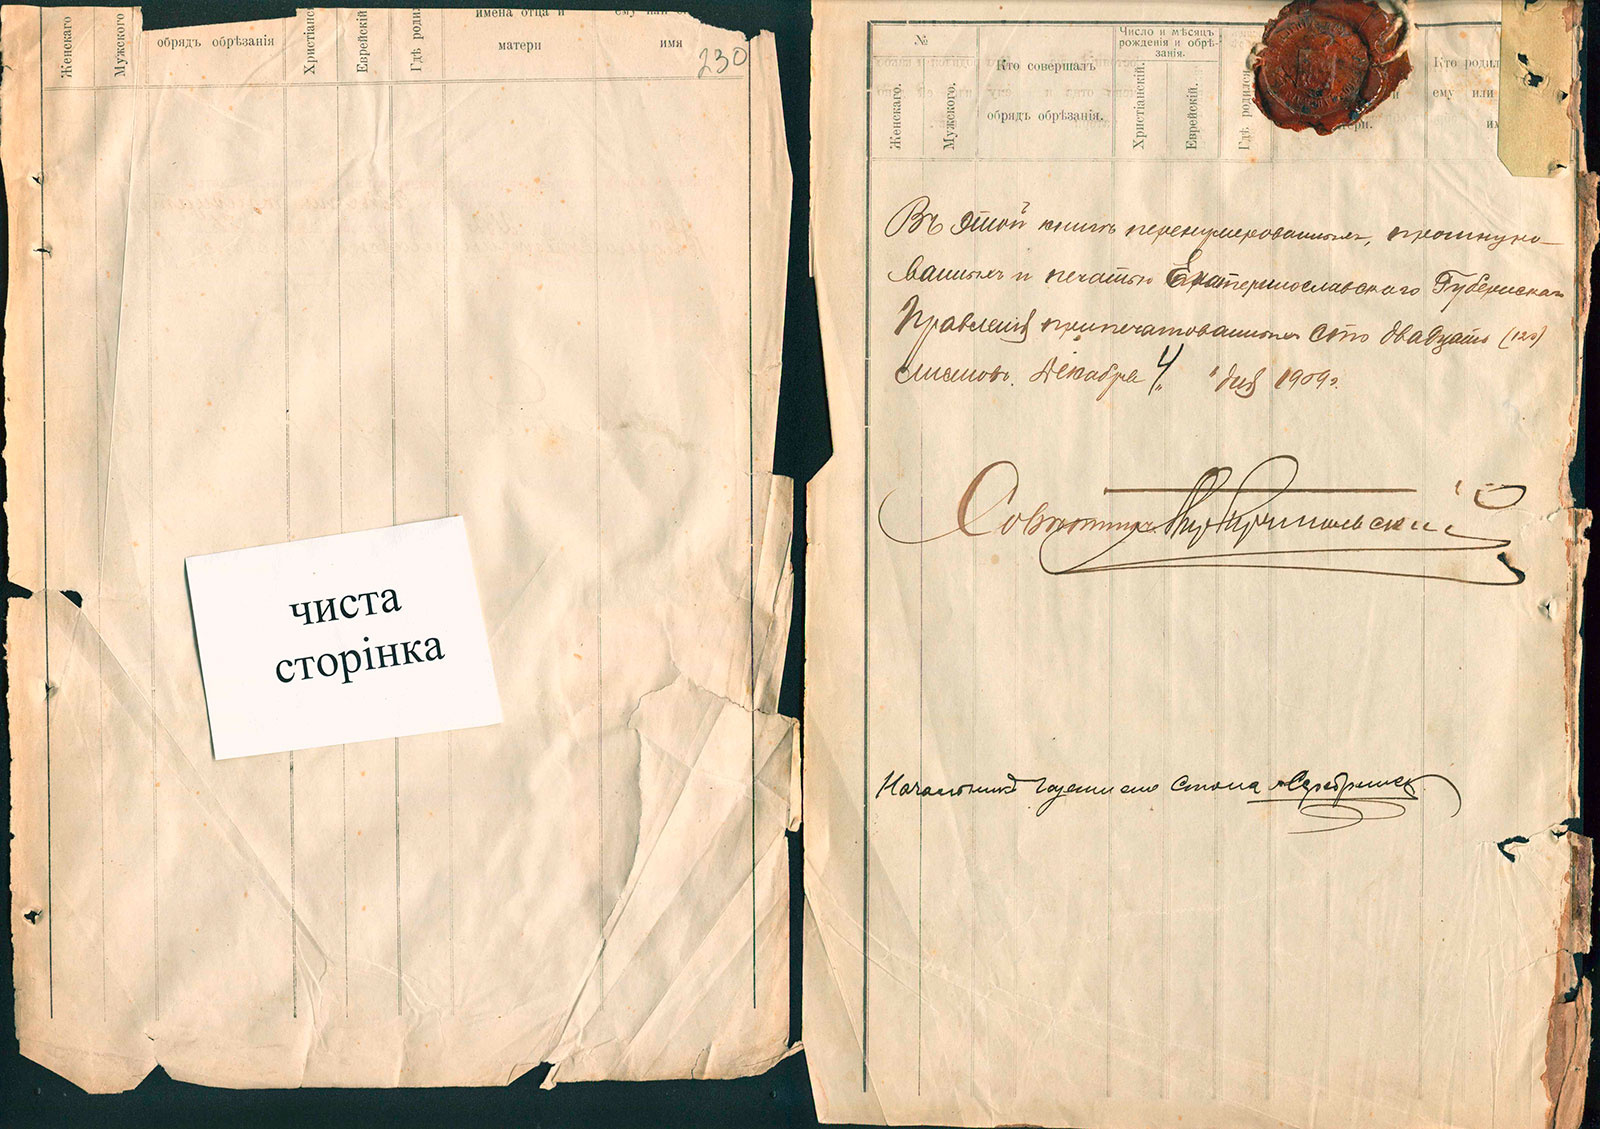 Женскаго
Мужского
обрядъ обрѣзанія
Христіанс
Еврейскій
Гдѣ родил
имена отца и
матери
ему или
имя
230
чиста
сторінка
№
Женскаго.
Мужского.
Кто совершалъ
обрядъ обрѣзанія.
Число и мѣсяцъ
рожденія и обрѣ-
занія.
Христіанскій.
Еврейскій.
Гдѣ родился
тери.
Кто родил
ему или
им
Въ этой книгѣ перенумерованныхъ, прошнуро-
ванныхъ и печатью Екатеринославскаго Губернскаго
Правленія припечатованныхъ сто двадцать (120)
листовъ. Декабря 4 " дня 1909 г.
Совѣтникъ
Начальникъ Газетнаго Стола